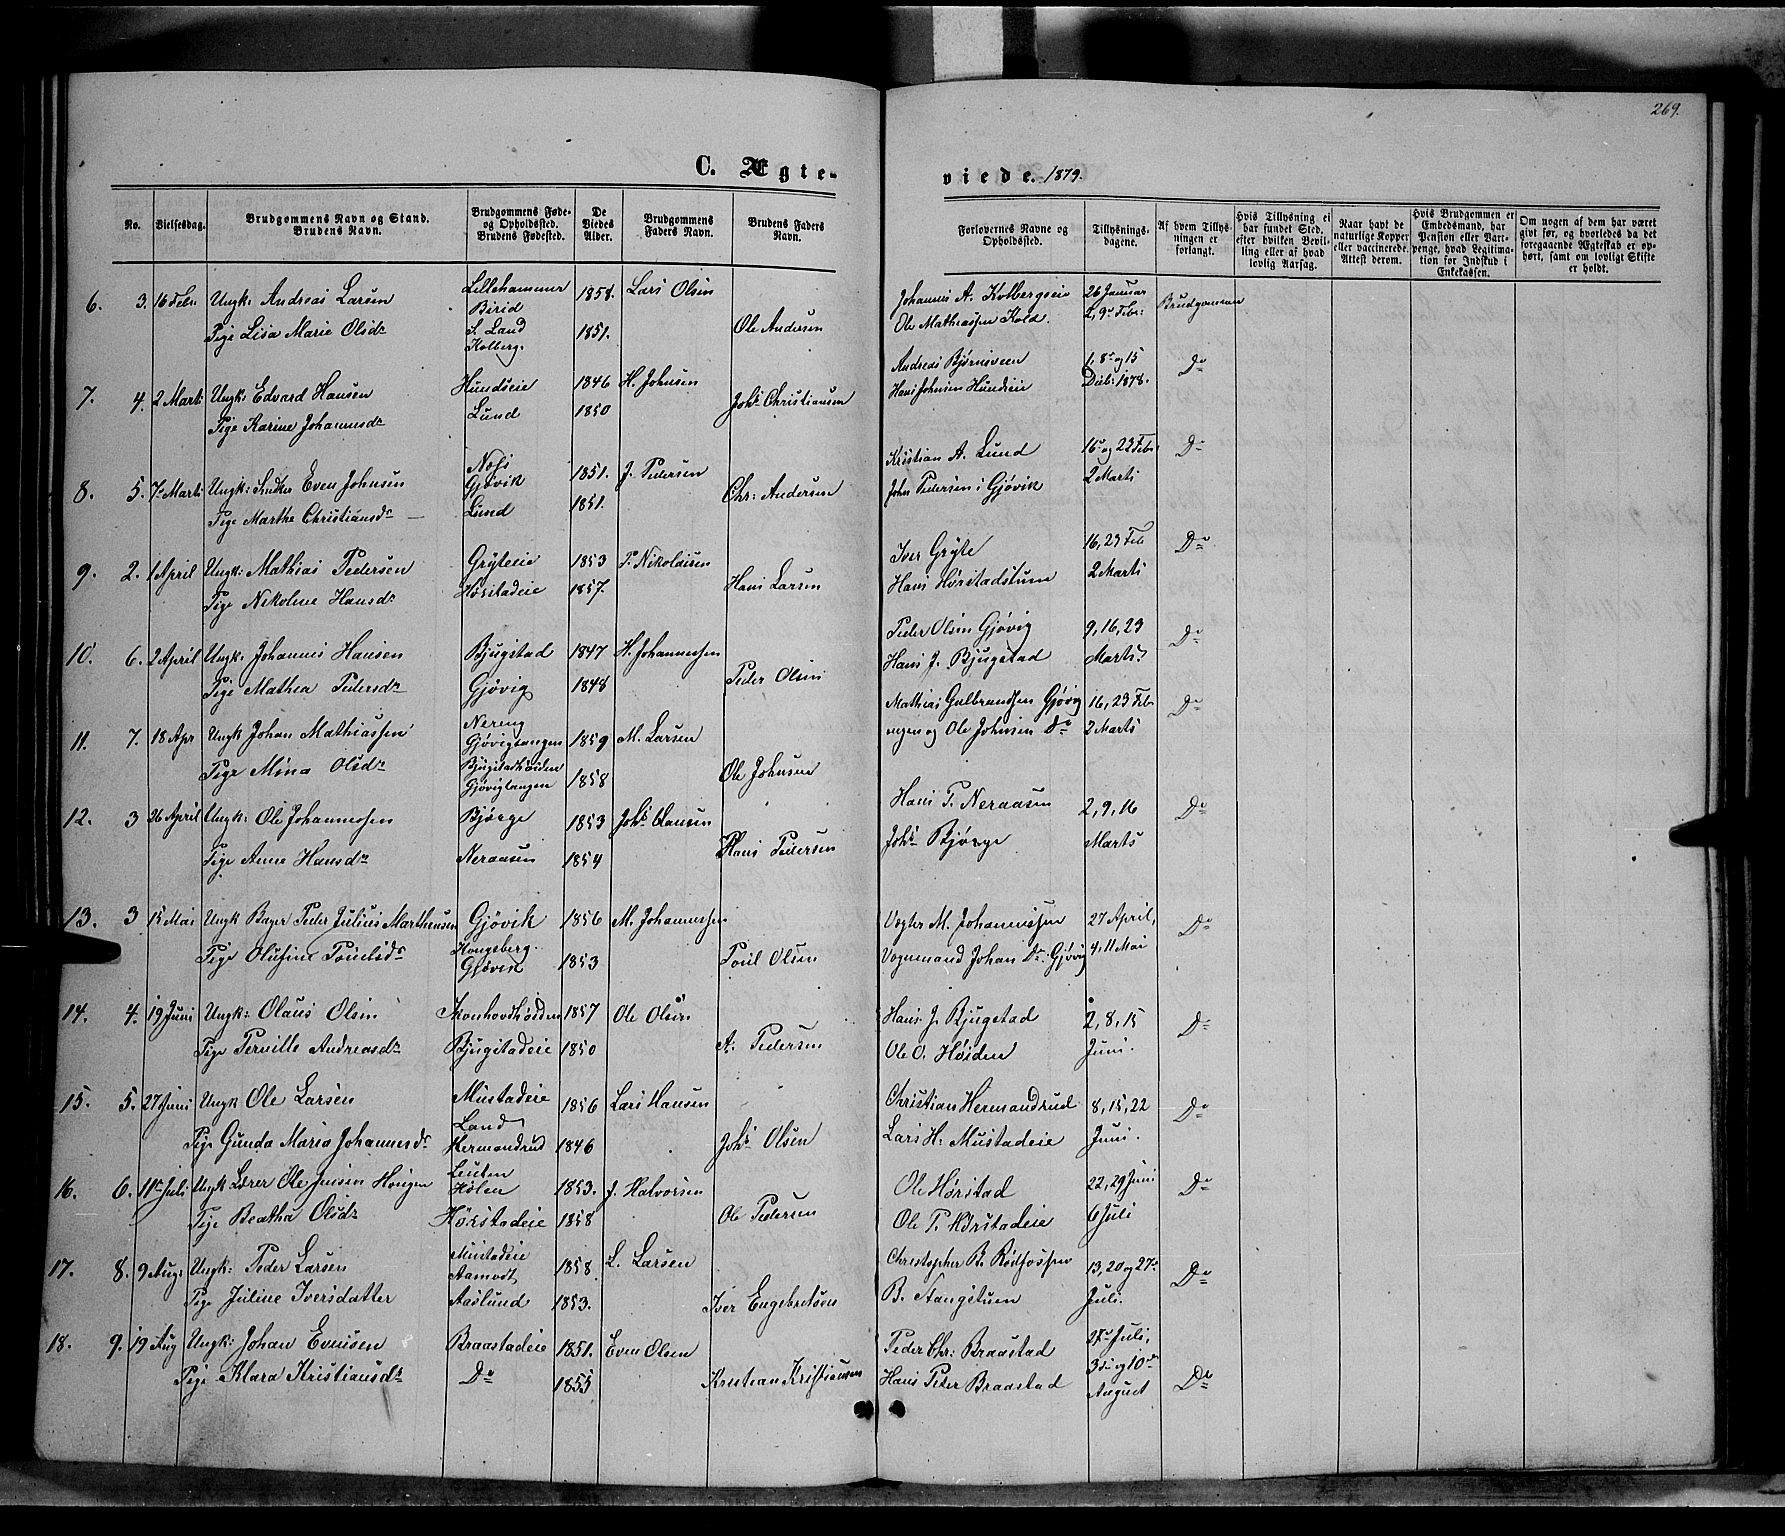 269.
C. Ægte-
viede. 1879.
No.
Vielsesdag.
Brudgommens Navn og Stand.
Brudens Navn.
Brudgommens Føde-
og Opholdssted.
Brudens Fødested.
De
Viedes
Alder.
Brudgommens
Faders Navn.
Brudens Faders
Navn.
Forlovernes Navne og
Opholdssted.
Tillysnings-
dagene.
Af hvem Tillys-
ningen er
forlangt.
Hvis Tillysning ei
har fundet Sted,
efter hvilken Bevil-
ling eller af hvad
lovlig Aarsag.
Naar havt de
naturlige Kopper
eller vaccinerede.
Attest derom.
Hvis Brudgommen er
Embedsmand, har
Pension eller Vart-
penge, hvad Legitima-
tion for Indskud i
Enkekassen.
Om nogen af dem har været
givt før, og hvorledes da det
foregaaende Ægteskab er op-
hørt, samt om lovligt Skifte
er holdt.
6. 3. 16 Febr. Ungk: Andreas Larsen Lillehammer Birid 1858. Lars Olsen
Pige Lisa Marie Olsdr S. Land Kolberg. 1851. Ole Andersen
Johannes A. Kolbergseie 26 Januar Brudgommen
Ole Mathiassen Kold. 2, 9 Febr:
7. 4. 2 Marts Ungk: Edvard Hansen Hundseie 1846 H. Johnsen
Pige Karine Johannesdr Lund 1850 Johs Christiansen
Andreas Bjørnsveen 1, 8 og 15 Do
Hans Johnsen Hundseie Debr: 1878.
8. 5. 7 Marts Ungk: Snedker Even Johnsen Næs Gjøvik 1851. J. Pedersen
Pige Marthe Christiansdr Lund 1851. Chr: Andersen
Kristian A. Lund 16 og 23 Febr Do
John Pedersen i Gjøvik 2 Marts
9. 2. 1 April Ungk: Mathias Pedersen Gryteeie 1853 P. Nikolaisen
Pige Nikoline Hansdr Hørstadeie 1857. Hans Larsen
Iver Gryte 16, 23 Feb Do
Hans Hørstadstuen 2 Marts
10. 6. 2 April Ungk: Johannes Hansen Bjugstad 1847 H. Johannessen
Pige Mathea Pedersdr Gjøvig 1848 Peder Olsen
Peder Olsen Gjøvig 9, 16, 23 Do
Hans J. Bjugstad Marts.
11. 7. 18 Apr Ungk Johan Mathiassen Nereng Gjøvigtangen 1859 M. Larsen
Pige Mina Olsdr Bjugstadhøiden Gjøvigtangen 1858 Ole Johnsen
Mathias Gulbrandsen Gjøvig 16, 23 Feb Do
ngen og Ole Johnsen Do 2 Marts
12. 3 26 April Ungk: Ole Johannessen Bjørge 1853 Johs Clausen
Pige Anne Hansdr Neraasen 1854 Hans Pedersen
Hans P. Neraasen 2, 9, 16 Do
Johs Bjørge Marts
13. 3 15 Mai Ungk Bager Peder Julius Marthinsen Gjøvik 1856 M. Johannessen
Pige Olufine Poulsdr Kongsberg. Gjøvik 1853 Poul Olsen
Vegter M. Johannessen 27 April, Do
Vognmand Johan Do Gjøvig 4, 11 Mai
14. 4. 19 Juni Ungk: Olaus Olsen Skonhovdhøiden 1857 Ole Olsen
Pige Pernille Andreasdr Bjugstadeie 1850 A. Pedersen
Hans J. Bjugstad 2, 8, 15 Do
Ole O. Høiden Juni.
15. 5. 27 Juni Ungk Ole Larsen Mustadeie Land 1856 Lars Hansen
Pige Gunda Maria Johannesdr Hermandrud 1846 Johs Olsen
Christian Hermandrud 8, 15, 22 Do
Lars H. Mustadeie Juni.
16. 6. 11 Juli Ungk Lærer Ole Jensen Haugen Leuten Hølen 1853. J. Halvorsen
Pige Beatha Olsdr Hørstadeie 1858 Ole Pedersen
Ole Hørstad 22, 29 Juni Do
Ole P. Hørstadeie 6 Juli
17. 8. 9 Aug: Ungk: Peder Larsen Mustadeie Aamodt 1858. L. Larsen
Pige Juline Iversdatter Aaslund 1853. Iver Engebretsen
Christopher B. Rødfossen 13, 20 og 27 Do
B. Stangstuen Juli.
18. 9. 19 Aug Ungk: Johan Evensen Braastadeie 1851. Even Olsen
Pige Klara Kristiansdr Do 1855 Kristian Kristiansen
Peder Chr: Braastad 27 Juli,
Hans Peter Braastad 3 og 10 August Do